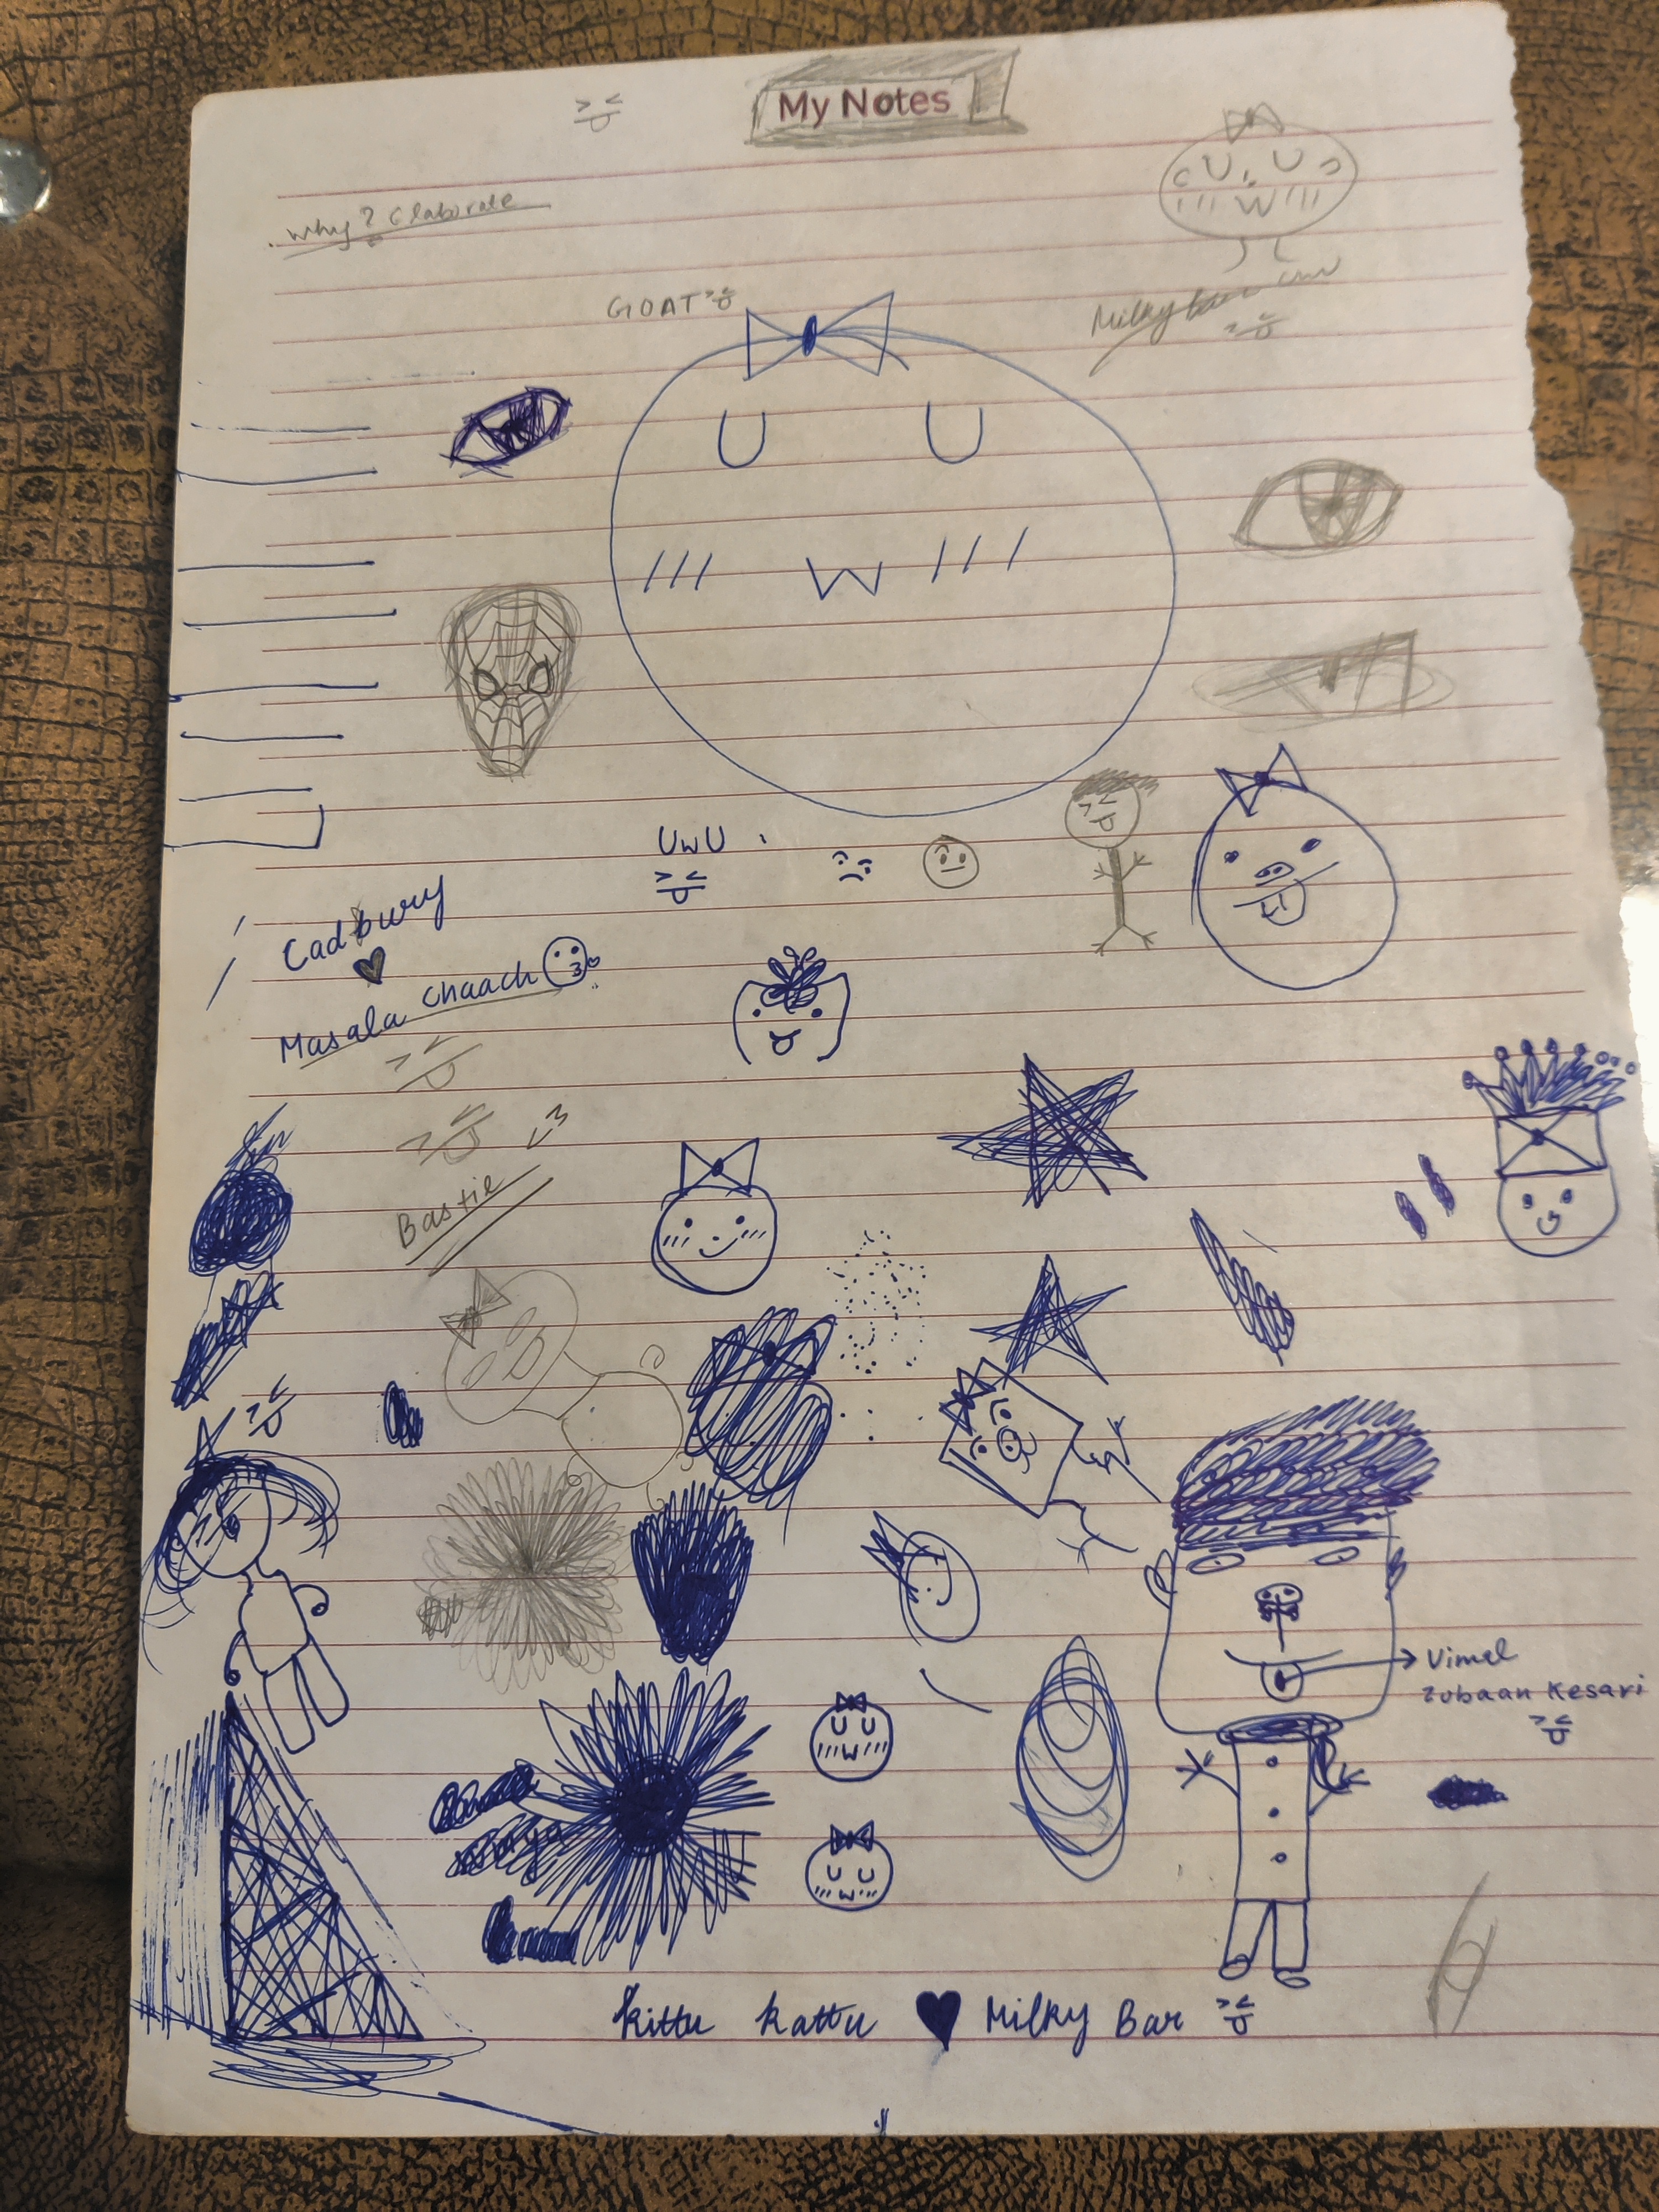 My Notes
Why? Elaborate
GOAT
Milky bar
UwU
Cadbury
Masala chaach
Bastie
Vimal
zubaan Kesari
kittu kattu ♥ Milky Bar